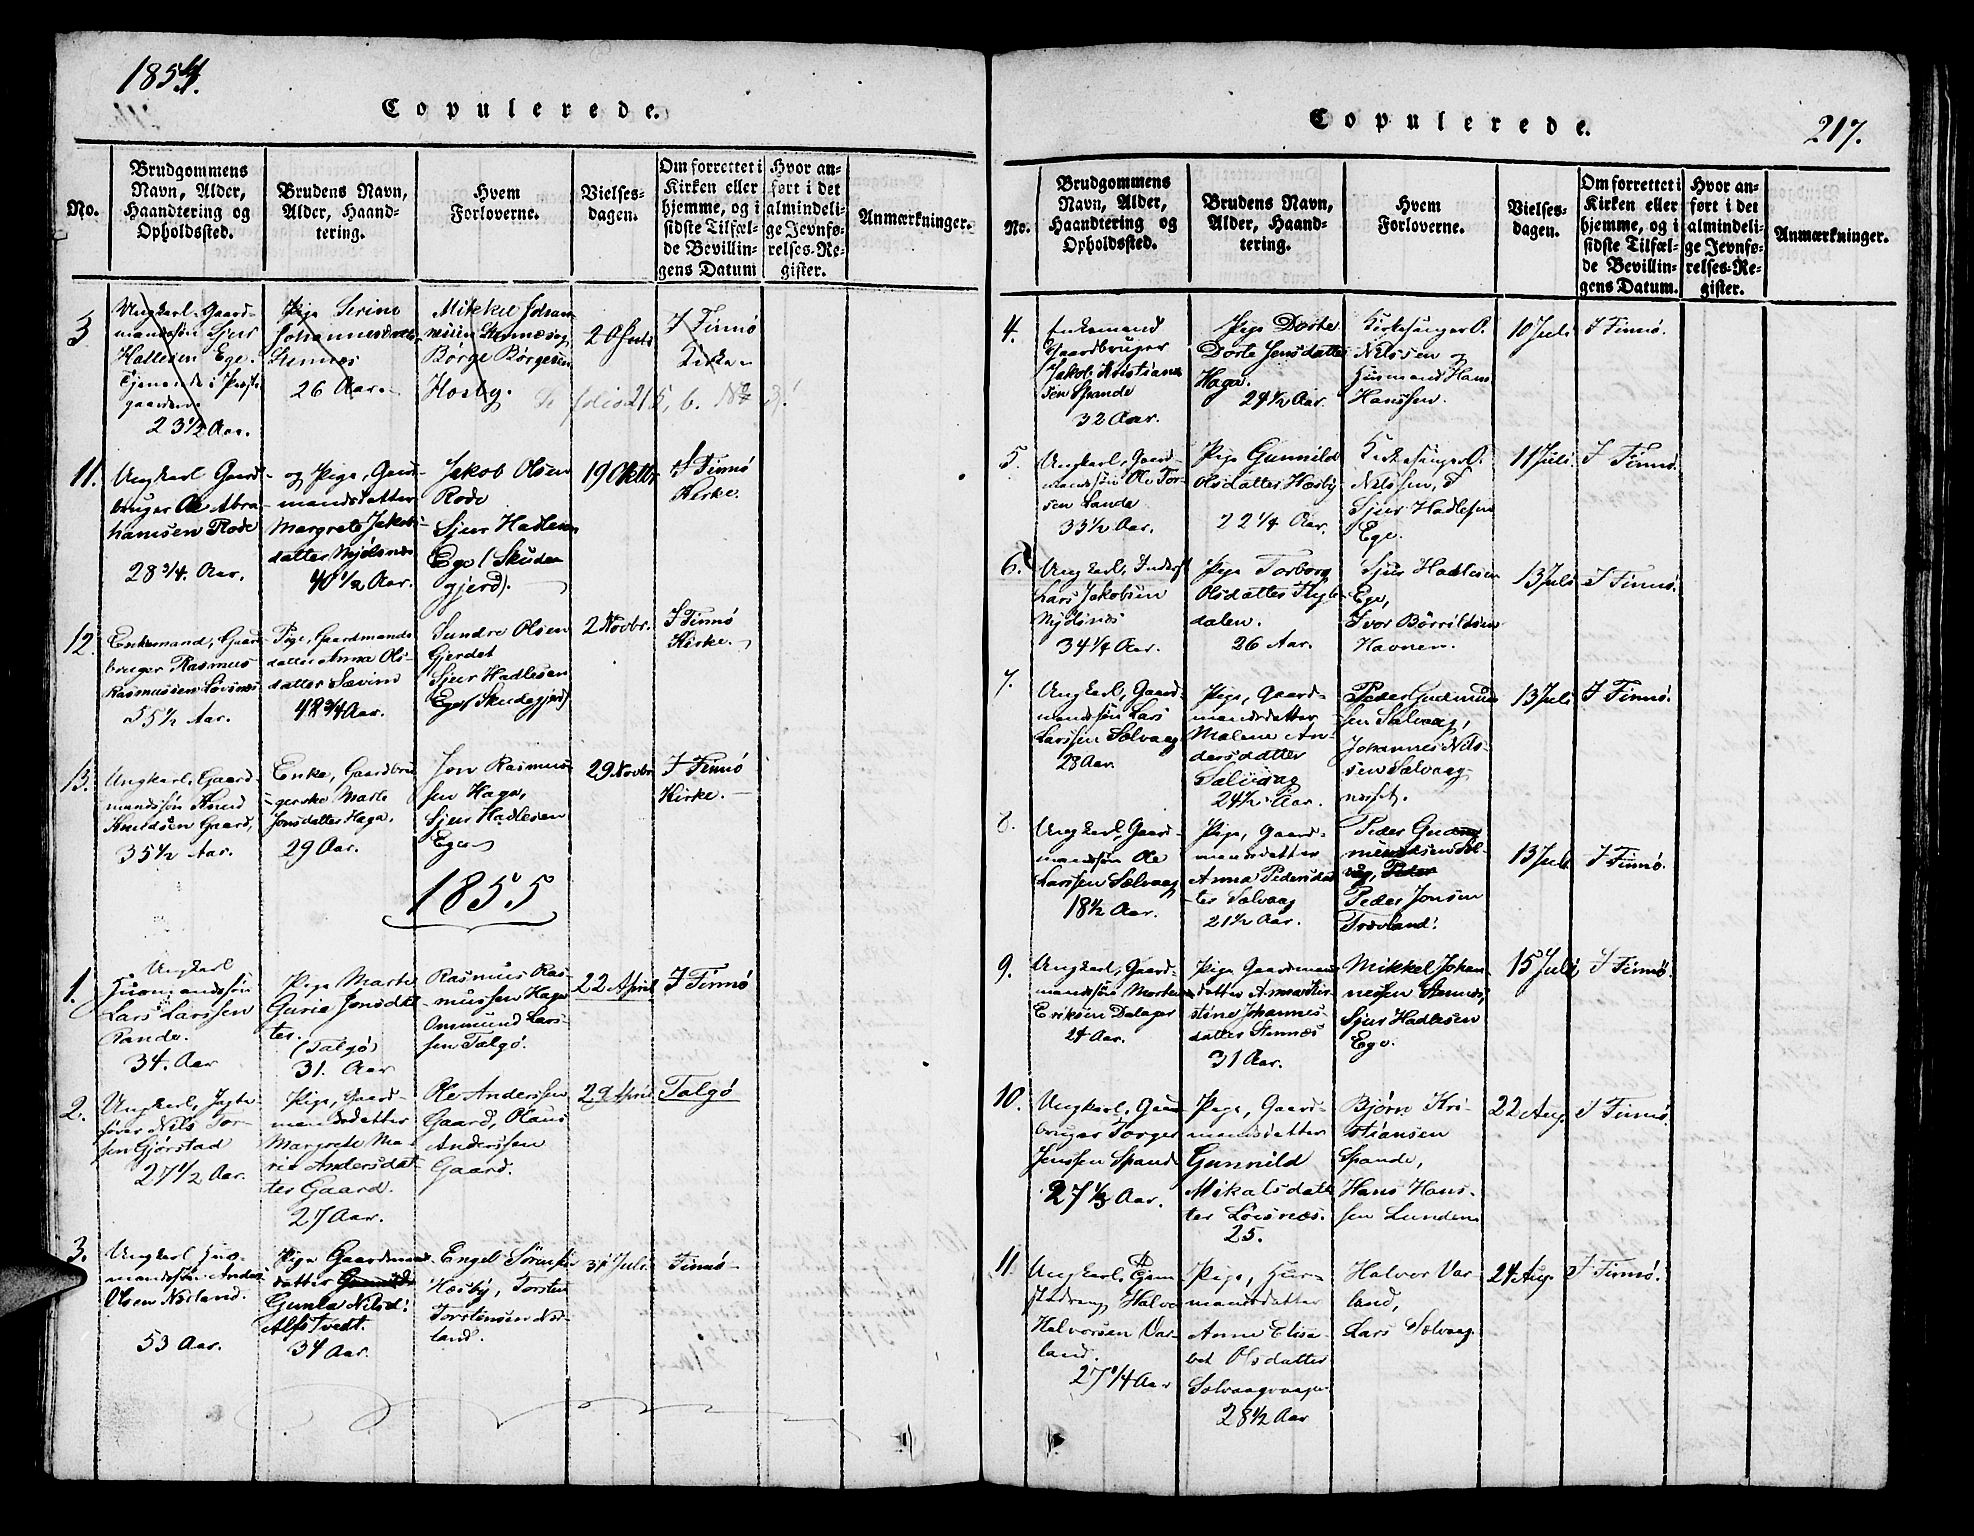 1854.
Copulerede.
No.
Brudgommens
Navn, Alder,
Haandtering og
Opholdssted.
Brudens Navn,
Alder, Haand-
tering.
Hvem
Forloverne.
Vielses-
dagen.
Om forrettet i
Kirken eller
hjemme, og i
sidste Tilfæl-
de Bevillin-
gens Datum
Hvor an-
ført i det
almindeli-
ge Jevnfø-
relses-Re-
gister.
Anmærkninger.
3
Ungkarl Gaard-
mandssøn Sjur
Hallesen Ege.
Tjenende i Præste
gaarden
23½ Aar.
Pige Serine
Johannesdatter
Stennæs
26 Aar.
Mikkel Johan-
Stennæs og
Børge Børgesen
Hæsby.
20 Juli
I Finnø
Kirke
folio 215, b. No 3!
11.
Ungkarl Gaard-
bruger Ole Abra-
hamsen Rode
28 3/4. Aar.
og Pige, Gaard-
mandsdatter
Margrete Jakobs-
datter Mjølsnæs
40 1/2 Aar.
Jakob Olsen
Rode
Sjur Hadlesen
Ege (Skude
gjerd).
19 Oktbr.
I Finnø
Kirke.
12.
Enkemand, Gaard
bruger Rasmus
Rasmussen Løvsnæs
55½ Aar.
Pige, Gaardmands
datter Anna Ols-
datter Sævim
48 3/4 Aar.
Sundre Olsen
Gjerdet
Sjur Hadlesen
Ege (Skudegjerd)
2 Novbr.
I Finnø
Kirke.
13.
Ungkarl, Gaard-
mandssøn Knud
Knudsen Gaard,
35½ Aar.
Enke, Gaardbru
gerske Marte
Jonsdatter Haga,
29 Aar.
Jon Rasmus
sen Haga,
Sjur Hadlesen
Ege
29 Novbr
I Finnø
Kirke.
1855
1.
Ungkarl
Husmandssøn
Lars Larssen
Rande.
34. Aar
Pige Marte
Guria Jonsdat
ter.
(Talgø)
31. Aar
Rasmus Ras-
mussen Haga
Ommund Lars-
sen Talgø.
22 April
I Finnø
2.
Ungkarl, Jagte-
fører Nils Tor-
sen Gjørstad
27 1/2 Aar.
Pige, Gaard-
mandsdatter
Margrete Ma-
rie Andersdat-
ter Gaard.
27 Aar.
Ole Anderssen
Gaard, Klaus
Anderssen
Gaard.
29 April
Talgø
3.
Ungkarl Hus-
mandssøn Anders
Olsen Næsland.
53 Aar.
Pige Gaardmand
datter
Gunla Nilsd:
Alfstvedt.
34 Aar.
Engel Sørensen
Hæsby, Torsten
Torstensen Næs-
land.
31 Juli
Finnø
Copulerede.
217.
No.
Brudgommens
Navn, Alder,
Haandtering og
Opholdssted.
Brudens Navn,
Alder, Haand-
tering.
Hvem
Forloverne.
Vielses-
dagen.
Om forrettet i
Kirken eller
hjemme, og i
sidste Tilfæl-
de Bevillin-
gens Datum.
Hvor an-
ført i det
almindeli-
ge Jevnfø-
relses-Re-
gister.
Anmærkninger.
4.
Enkemand
Gaardbruger
Jakob Kristian-
sen Spande
32 Aar.
Pige Dorte
Dorte Jensdatter
Haga.
24½ Aar.
Kirkesanger O.
Nilssen og
Husmand Hans
Hanssen.
10 Juli
I Finnø.
5.
Ungkarl, Gaard-
mandssøn Ole Tor-
sen Lande
33½ Aar.
Pige Gunnild
Olsdatter Hæsby
22 1/4 Aar.
Kirkesanger O.
Nilssen,
Sjur Hadlesen
Ege.
11 Juli
I Finnø.
6.
Ungkarl, Inders.
Lars Jakobsen
Mjølsnæs
34 1/4 Aar.
Pige Torborg
Olsdatter
dalen.
26 Aar.
Sjur Hadlesen
Ege,
Ivor Børrildsen
Havnen.
13 Juli
I Finnø.
7.
Ungkarl, Gaard-
mandssøn Lars
Larssen Sælvaag
28 Aar.
Pige, Gaard-
mandsdatter
Malene An-
dersdatter
Salvaag
24½ Aar.
Peder Gudmund
sen Salvaag,
Johannes Nils-
sen Sælvaag-
næset.
13 Juli
I Finnø.
8.
Ungkarl, Gaard-
mandssøn Ole
Larssen Sælvaag
18½ Aar.
Pige, Gaard-
mandsdatter
Anna Pedersdat
ter Salvaag
21½ Aar.
Peder Gud
mundsen Sal-
vag, Peder
Peder Jonsen
Trævland.
13 Juli
I Finnø.
9.
Ungkarl, Gaard-
mandssøn Morten
Eriksen Dalager
24 Aar.
Pige Gaardman
datter Anna Kir-
stine Johannes-
datter Stennæs
31 Aar.
Mikkel Johan-
nessen Stennæs,
Sjur Hadlesen
Ege.
15 Juli
I Finnø.
10.
Ungkarl, Gaard
bruger Torger
Jenssen Spande
27 1/3 Aar.
Pige, Gaard-
mandsdatter
Gunnild
Mikalsdatt
ter Løvsnæs.
25.
Bjørn Kri-
stiansen
Spande,
Hans Hans-
sen Lunden
22 Aug.
I Finnø.
11.
Ungkarl,
Halvor
Halvorsen Var-
land.
27 1/4 Aar
Pige, Hus-
mandsdatter
Anne Elisa-
bet Olsdatter
Sælvaagvaagen
28½ Aar
Halvor Var
land,
Lars Sælvaag.
24 Aug.
I Finnø.